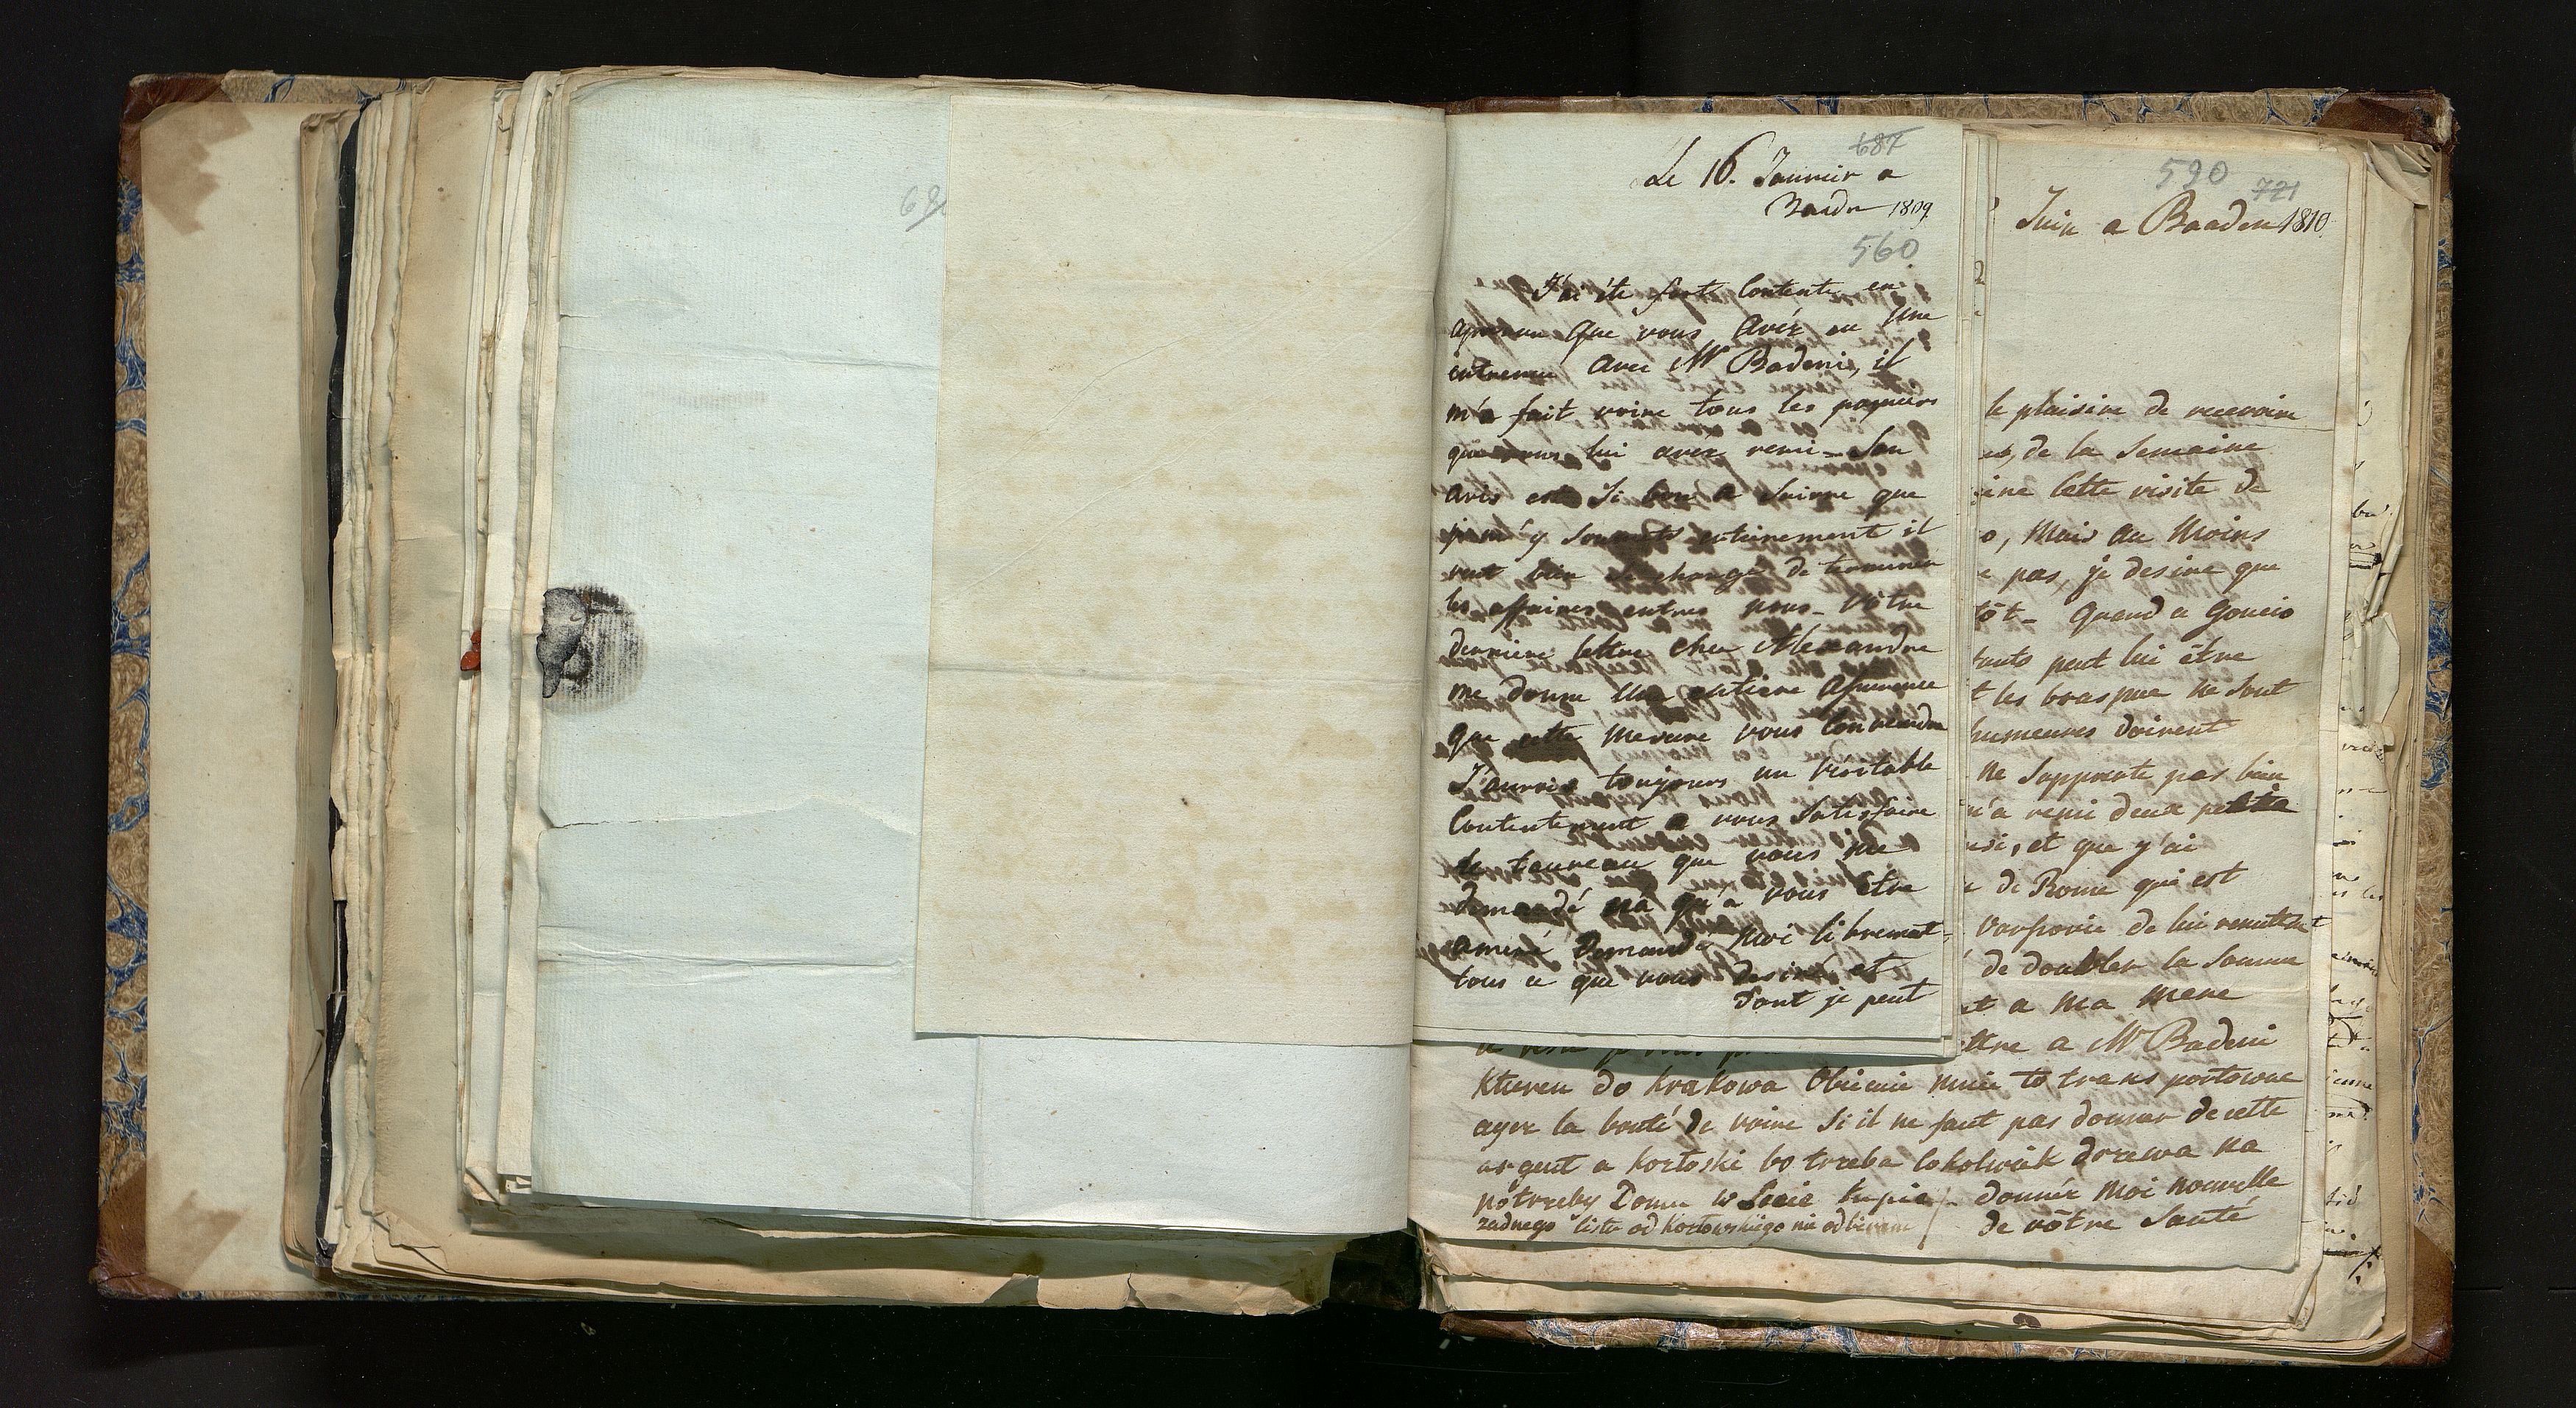 687
Le 16. Janvier a
Baade 1809
560
J'ai été fort Contente en
aprenan que vous Avéz eu une
entrevue avec Mr Badeni, il
m'a fait voire tous les papiers
que vous lui avez remi_ Son
avis est Si bon a Suivre que
je m'y Soumets entierement il
veut bien se charge de terminér
les affaires entres nous_ Vôtre
derniere lettre chez Alexandre
me donne une entiere Asurence
que cette mesure vous Conviendra
J'aurois toujours un Veritable
Contentement a vous Satisfaire
le taureau que vous me
demandé na qu'a vous être
amené Demandé moi librement
tous ce que vous desiré et
Dont je peut
590 721
Juin a Baaden 1810
le plaisire de recevoire
de la Semaine
cette visite de
Mais au Moins
pas, je desire que
tôt_ Quand a Goucio
peut lui être
les bras que ne Sont
humeures doivent
ne Supporte pas bien
m'a remi deux petite
et que y'ai
de Rome qui est
Varsovie de lui remettre
de doubler la Somme
et a Ma Mere
a Mr Badeni
Kturen do Krakowa Obiecuie mnie to transportowac
ayez la bonté de voire Si il ne faut pas donner de cette
argent a Kozłoski bo trzeba Cokolwiek drzewa na
potrzeby Domu w Lecie kupic / donnér Moi nouvelle
zadnego listu od Kozłowskiego nie odbieram / de vôtre Santé